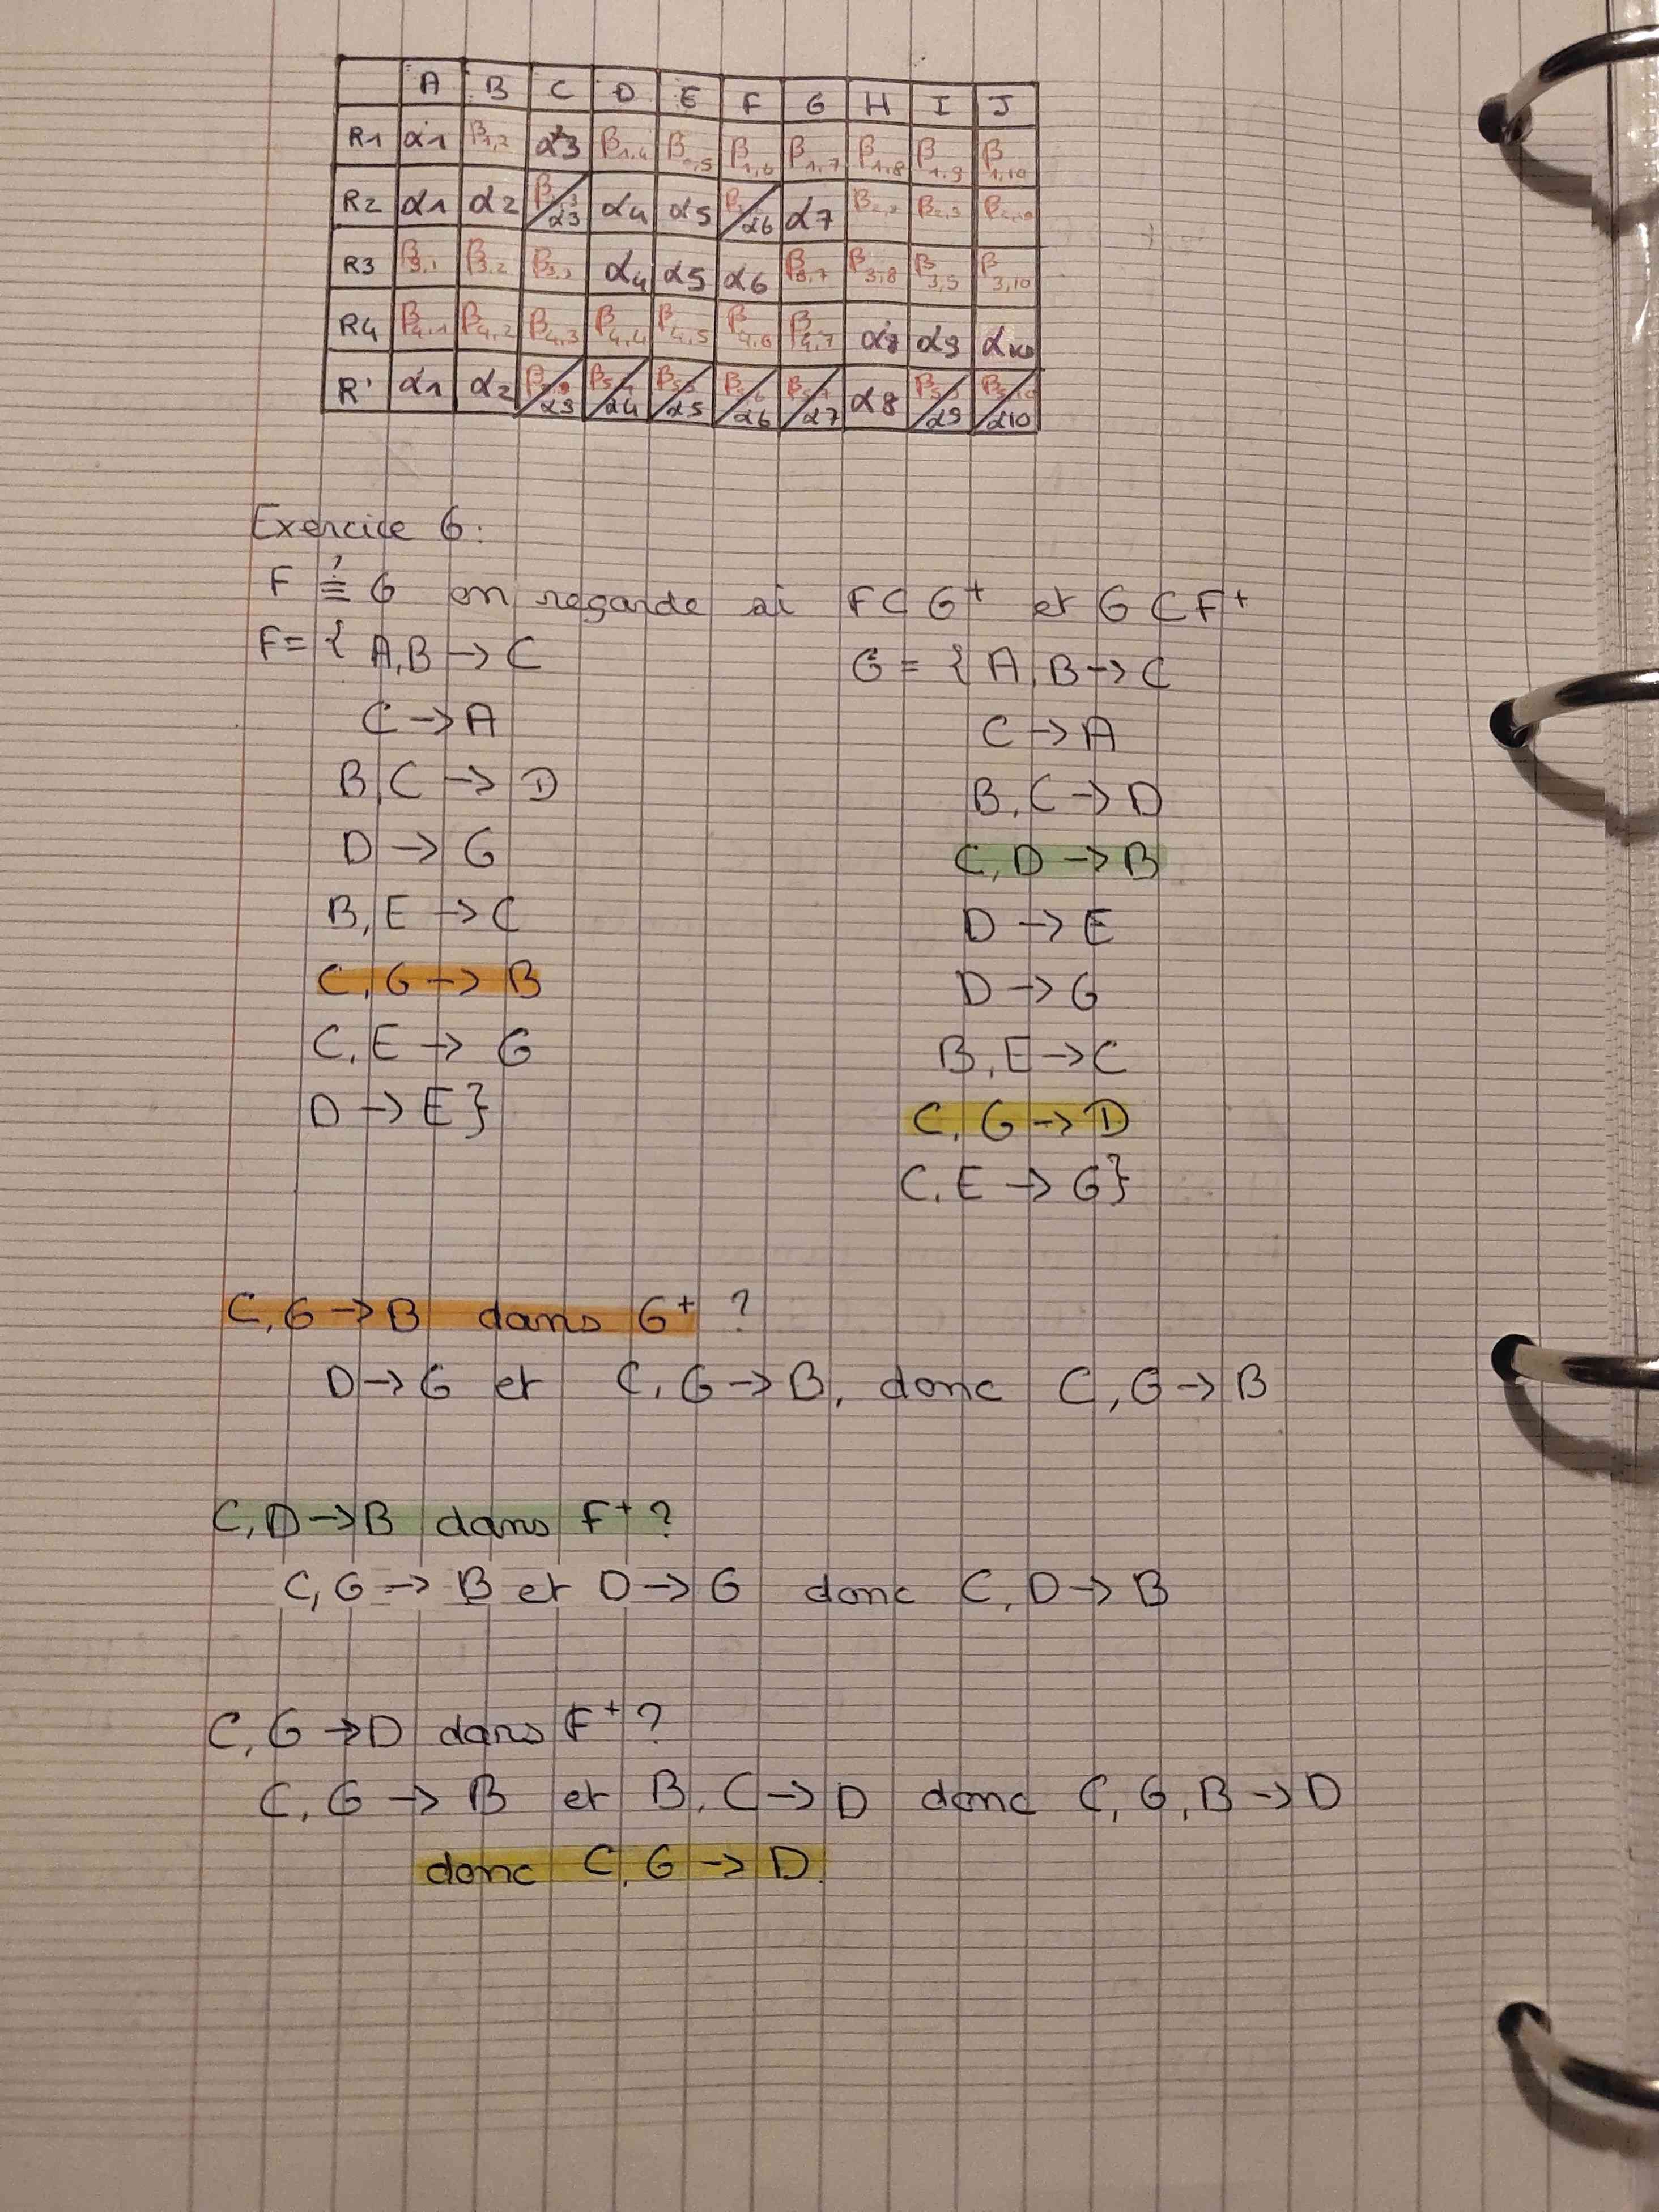 A B C D E F G H I J
R1 α1 β1,2 α3 β1,4 β1,5 β1,6 β1,7 β1,8 β1,9 β1,10
R2 α1 α2 α3 α4 α5 α6 α7
R3 β3,1 β3,2 β3,3 α4 α5 α6 β3,7 β3,8 β3,9 β3,10
R4 β4,1 β4,2 β4,3 β4,4 β4,5 β4,6 β4,7 α8 α9 α10
R' α1 α2 α3 α4 α5 α6 α7 α8 α9 α10
Exercice 6:
F ≡ G on regarde si F⊂G⁺ et G⊂F⁺
F={ A,B→C G={ A,B→C
C→A C→A
B,C→D B,C→D
D→G C,D→B
B,E→C D→E
C,G→B D→G
C,E→G B,E→C
D→E} C,G→D
C,E→G}
C,G→B dans G⁺ ?
D→G et C,G→B, donc C,G→B
C,D→B dans F⁺?
C,G→B et D→G donc C,D→B
C,G→D dans F⁺?
C,G→B et B,C→D donc C,G,B→D
donc C,G→D